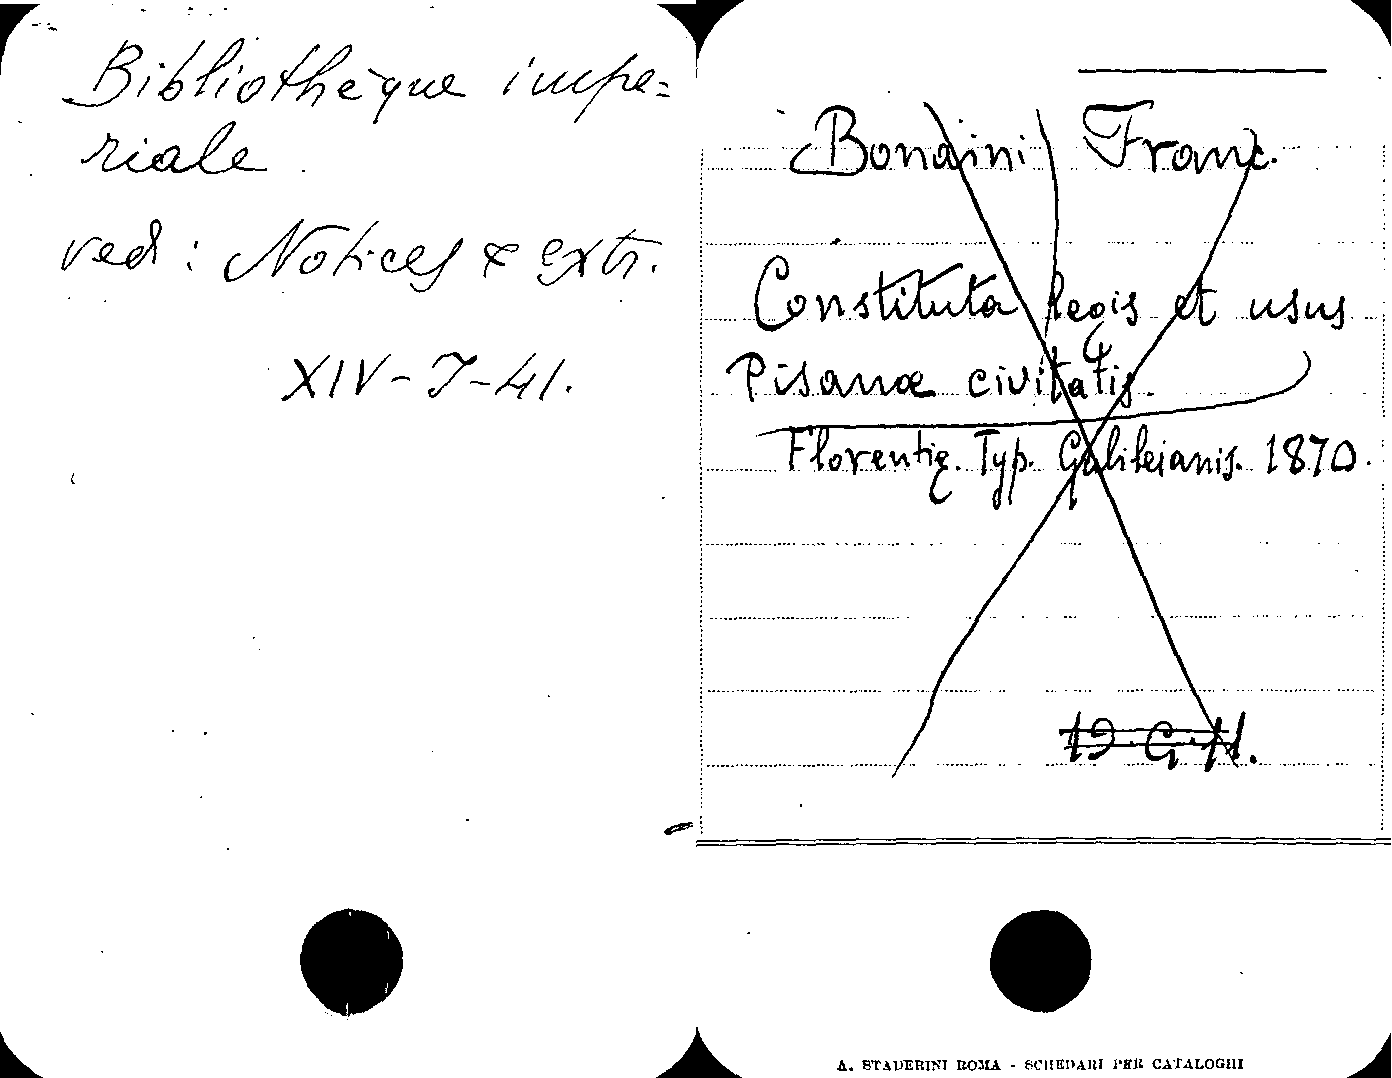 Bibliothèque impe=
riale
ved: Notices & extr.
XIV-J-41.
Bonaini Franc.
Constituta legis et usus
Pisanæ civitatis.
Florentię. Typ. Galileianis. 1870.
19.G.11.
A. STADERINI ROMA - SCHEDARI PER CATALOGHI